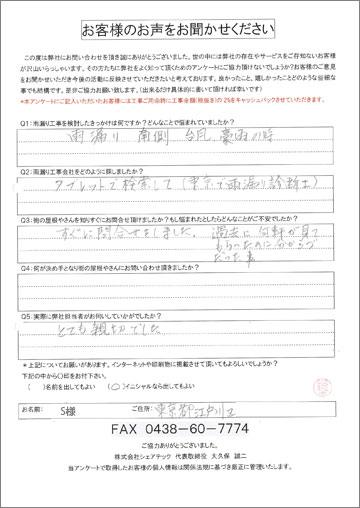 お客様のお声をお聞かせください
この度は弊社にお問い合わせを頂き誠にありがとうございました。世の中には弊社の存在やサービスをご存知ないお客様
が沢山いらっしゃいます。その方たちに弊社をよく知って頂くためのアンケートにご協力頂けないでしょうか？お客様のご意見
をお聞かせいただき今後の活動に反映させていただきたいと考えております。良かったこと、嬉しかったことどのような些細な
事でも結構です。是非ご協力お願い致します。（出来るだけ具体的に書いて頂ければ幸いです）
*本アンケートにご記入いただいたお客様には工事ご用命時に工事金額(税抜き)の2%をキャッシュバックさせていただきます。
Q1：雨漏り工事を検討したきっかけは何ですか？どんなことで悩まれていましたか？
雨漏り 南側 台風、豪雨の時
Q2：雨漏り工事会社をどのように探しましたか？
タブレットで検索して（東京で雨漏り診断士）
Q3：街の屋根やさんを知りすぐにお問合せ頂けましたか？もし悩まれたとしたらどんなことがご不安でしたか？
すぐに問合せをしました。過去に何軒が見て
もらったのに分からず
だった事
Q4：何が決め手となり街の屋根やさんにお問い合わせ頂きましたか？
Q5：実際に弊社担当者がお伺いしていかがでしたか？
とても親切でした
＊上記についてお願いがあります。インターネットや印刷物に掲載させて頂いてもよろしいでしょうか？
下記の中から○印をお付下さい。
（　）名前を出してもよい　（○）イニシャルなら出してもよい
お名前：　S様　ご住所：東京都江戸川区
FAX 0438-60-7774
ご協力ありがとうございました。
株式会社シェアテック 代表取締役 大久保 誠二
当アンケートで取得したお客様の個人情報は関係法規に基づき厳正に管理いたします。